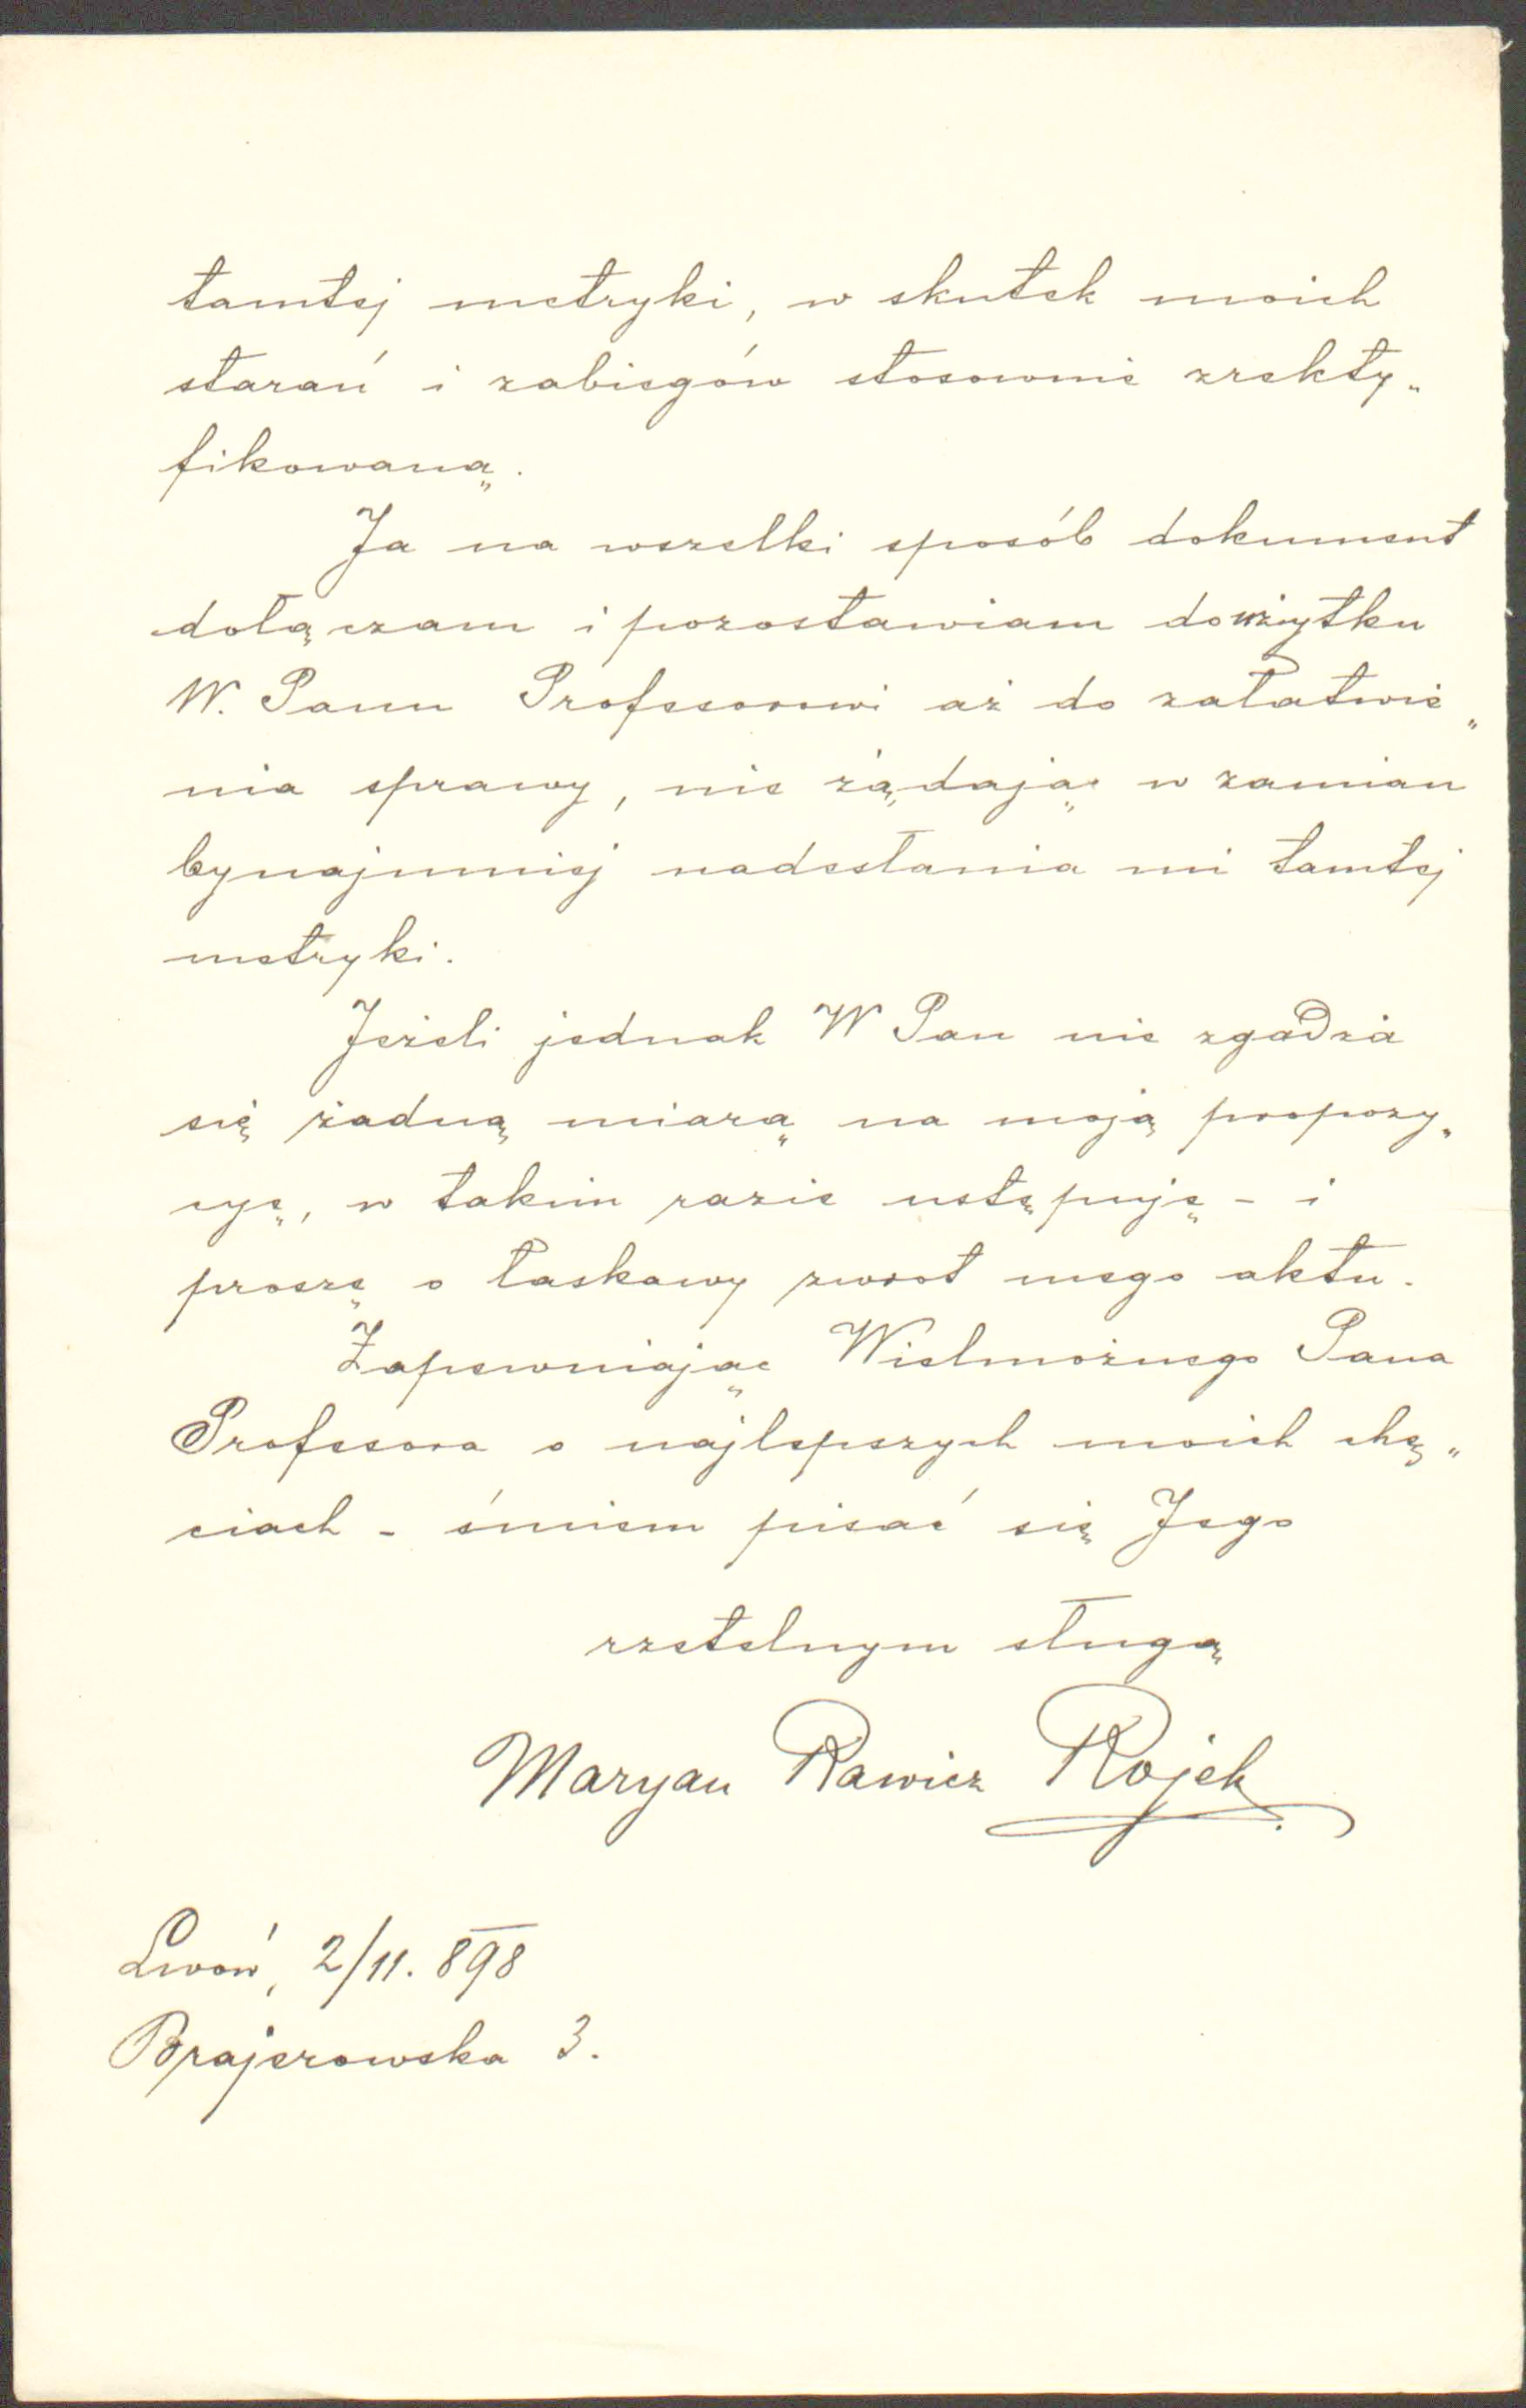 tamtej metryki, w skutek moich
starań i zabiegów stosownie zrekty„
fikowaną.
Ja na wszelki sposób dokument
dołączam i pozostawiam do użytku
W. Panu Professorowi aż do załatwie„
nia sprawy, nie żądając w zamian
bynajmniej nadesłania mi tamtej
metryki.
Jeżeli jednak W Pan nie zgadza
się żadną miarą na moją propozy„
cyę, w takim razie ustępuję – i
proszę o łaskawy zwrot mego aktu.
Zapewniając Wielmożnego Pana
Professora o najlepszych moich chę„
ciach – śmiem pisać się Jego
rzetelnym sługą
Maryan Rawicz Rojek
Lwów, 2/11. 898
Brajerowska 3.